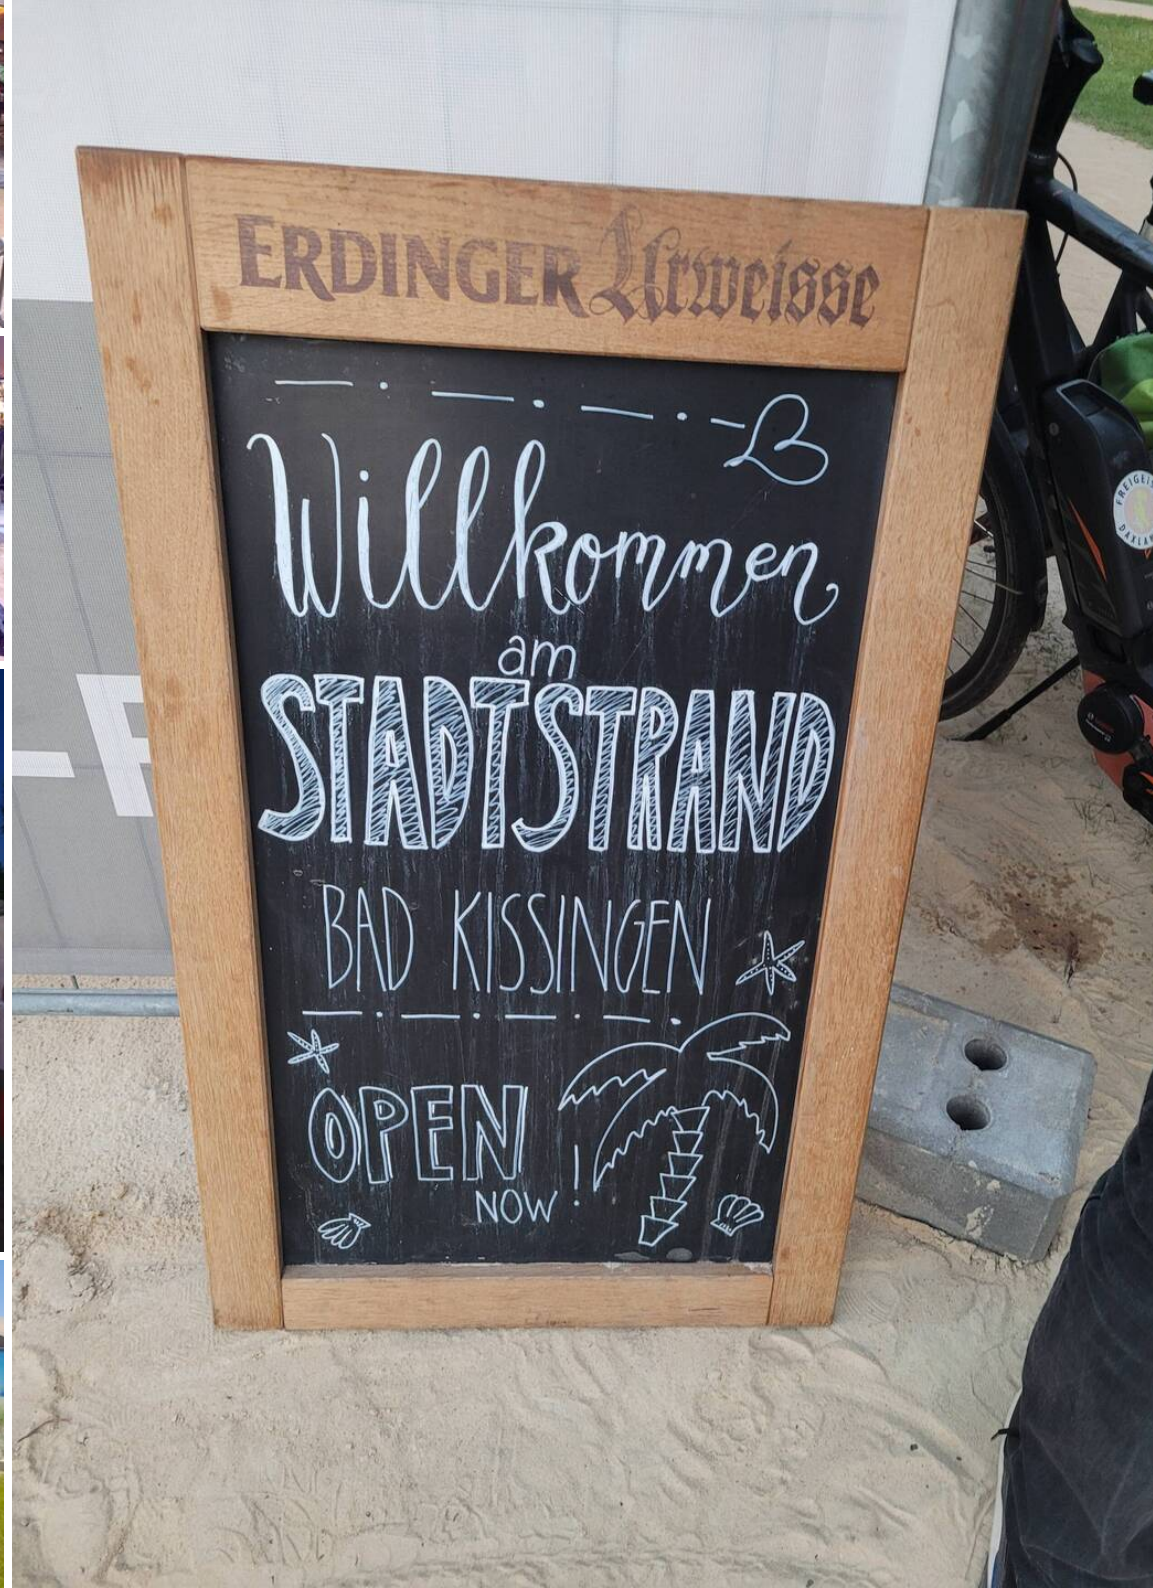 ERDINGER Urweisse
Willkommen
am
STADTSTRAND
BAD KISSINGEN
OPEN
NOW!